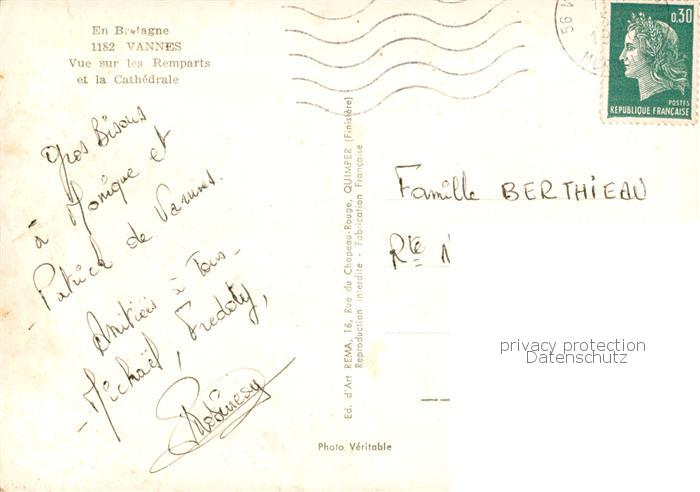 En Bretagne
1182 VANNES
Vue sur les Remparts
et la Cathédrale
Gros Bisous
à Monique et
Patrick de Vannes.
Amitiés à Tous -
- Michaël, Fredoty,
Ed. d'Art REMA, 16, Rue du Chapeau-Rouge, QUIMPER (Finistère)
Reproduction interdite - Fabrication Française
Photo Véritable
56
0,30
POSTES
REPUBLIQUE FRANÇAISE
Famille BERTHIEAU
Rte
privacy protection
Datenschutz